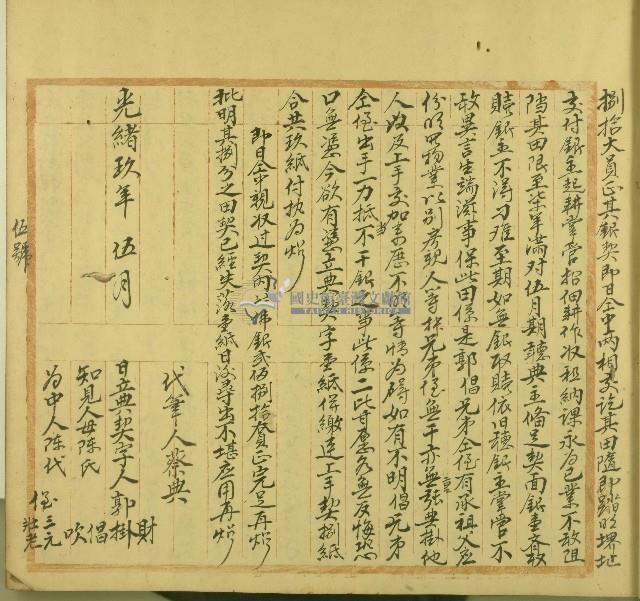 捌拾大員正其銀契即日仝中兩相交訖其田隨即踏明界址
交付銀主起耕掌管招佃耕作收租納課永為己業不敢阻
擋其田限至柒年滿对伍月期聽典主備足契面銀壹齊取
贖銀主不得刁难至期如無銀取贖依旧聽銀主掌管不
敢異言生端滋事保此田係是郭倡兄弟仝侄有承祖父應
份明四物業以別房親人等採兄弟侄無干亦無重張典掛他
人以及上手交加來歷不明等情為碍如有不明倡兄弟
仝侄出手一力抵当不干銀主之事此係二比甘愿各無反悔恐
口無憑今欲有憑立典契字壹紙併繳連上手契捌紙
合共玖紙付执為炤
即日仝中親收过契內 佛銀弍佰捌拾員正完足再炤
批明其捌分之田契已經失落壹紙日後尋出不堪应用再炤
代筆人蔡典
光緒玖年 伍月
日立典契字人郭掛財
倡
吹
知見人母陳氏
為中人陈代
侄三元
壯老
伍號
國史館臺灣文獻館
TAIWAN HISTORICA